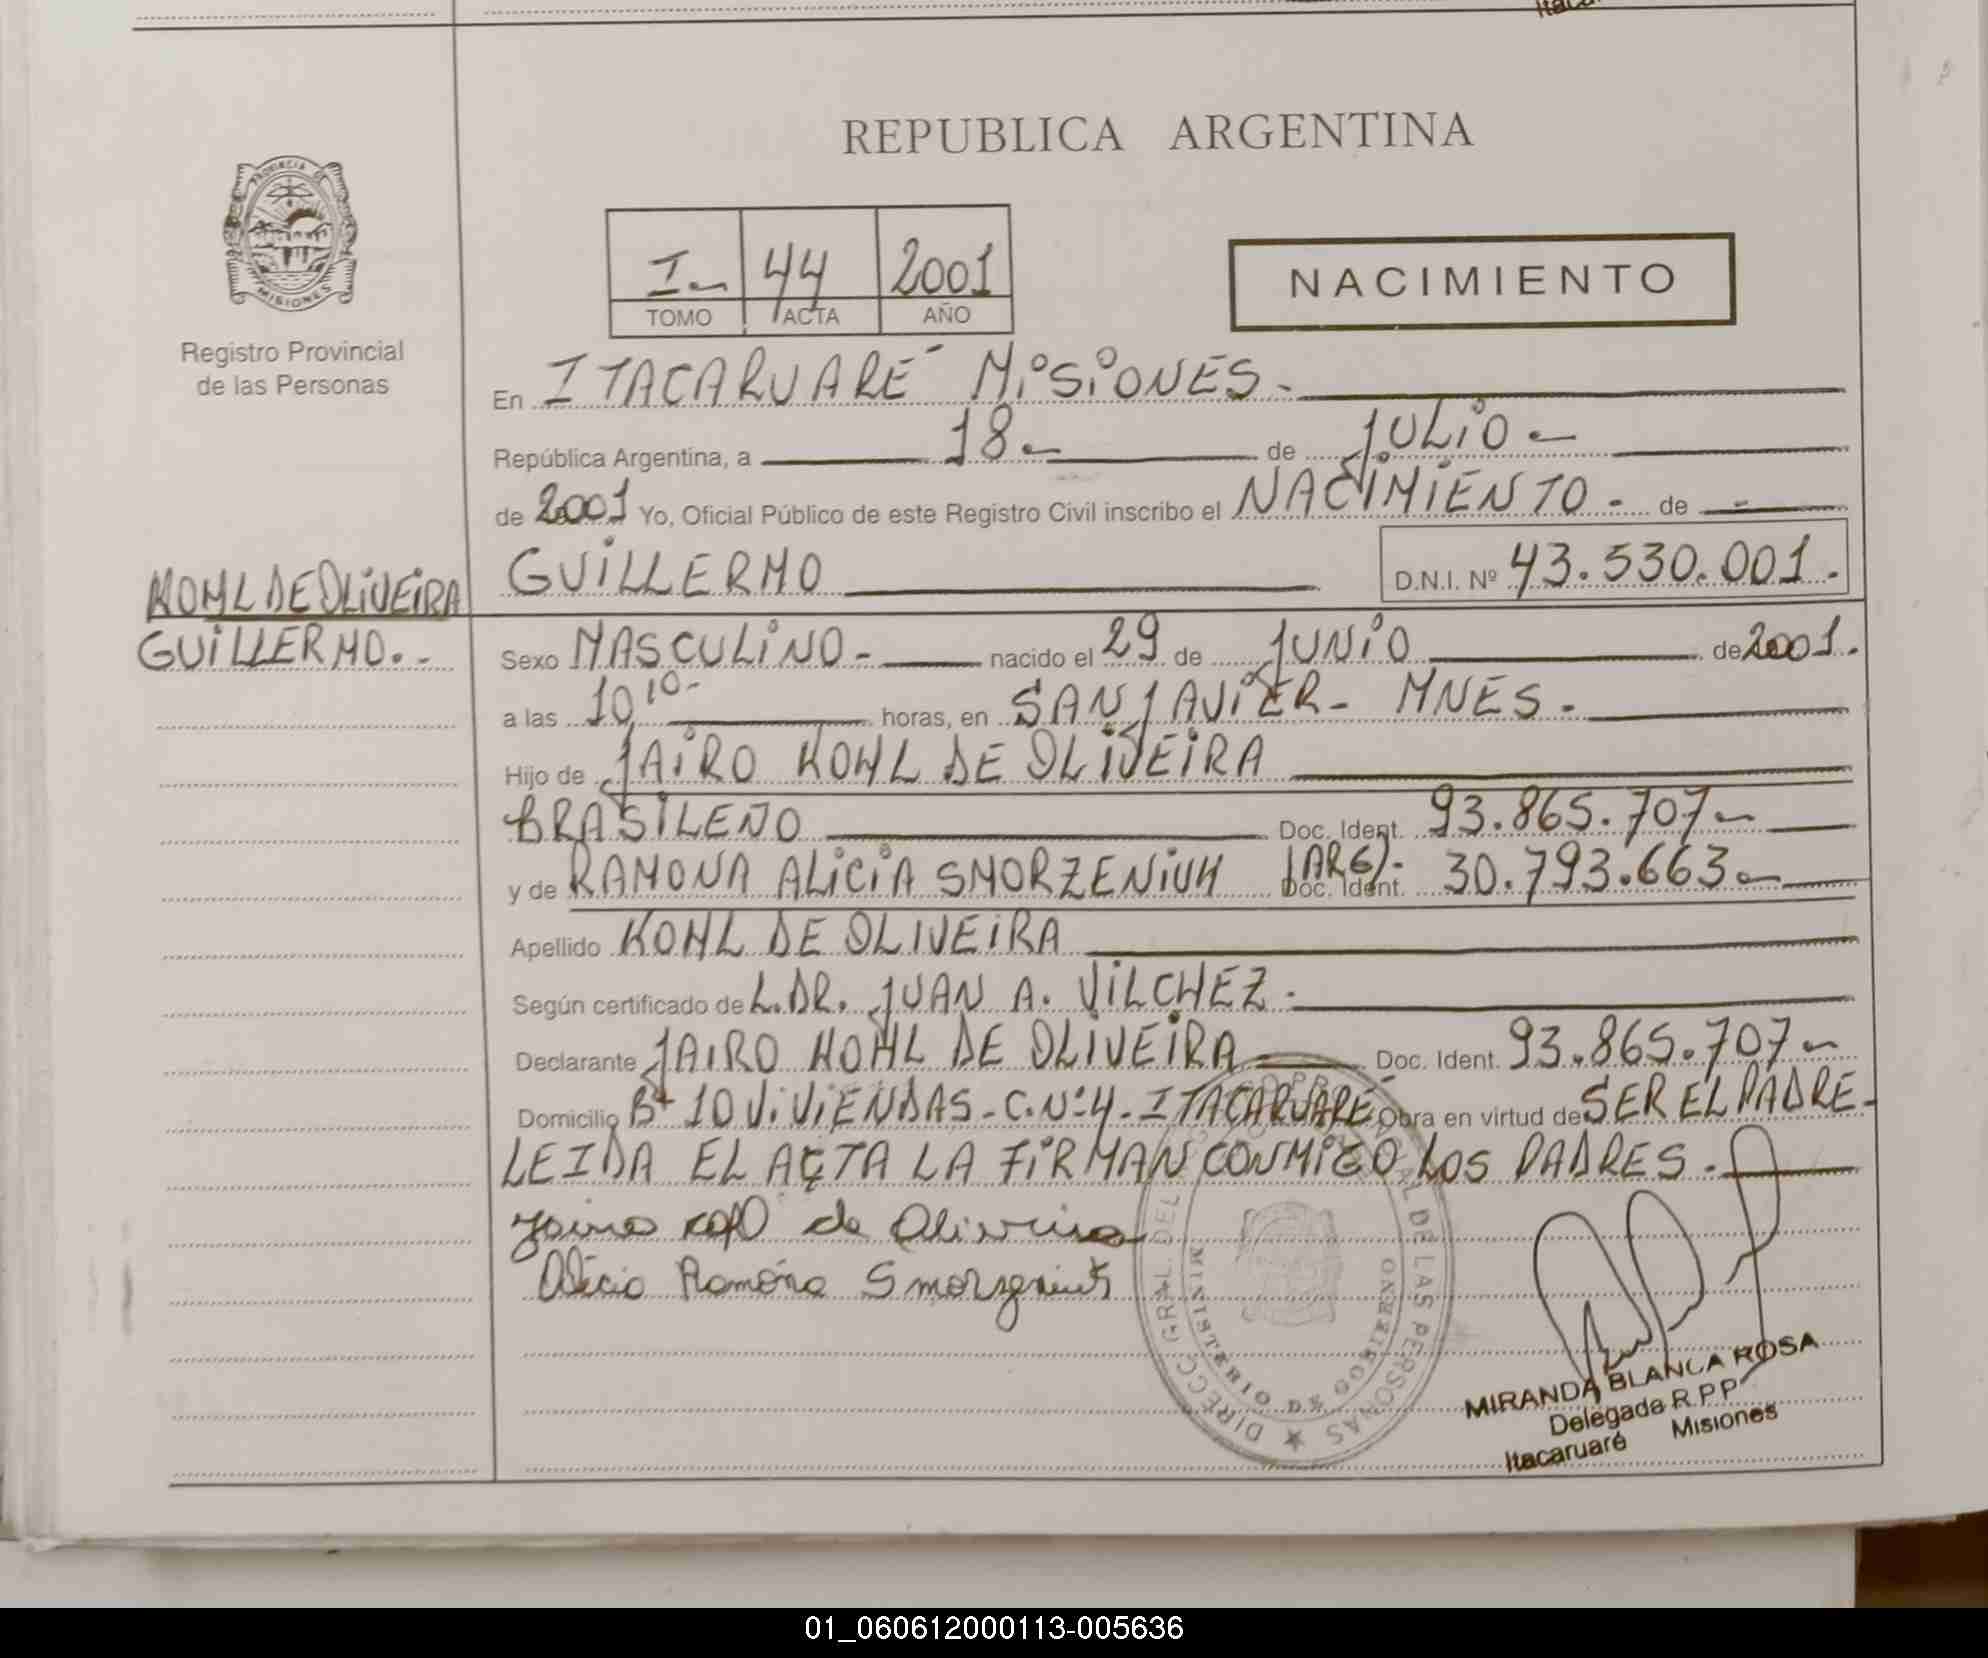 REPUBLICA ARGENTINA
PROVINCIA DE
MISIONES
Registro Provincial
de las Personas
I.- 44 2001
TOMO ACTA AÑO
NACIMIENTO
En ITACARUARÉ MiSiONES.-
República Argentina, a 18.- de JULiO.-
de 2001 Yo, Oficial Público de este Registro Civil inscribo el NACiMiENTO.- de -
KOHL DE OLiVEiRA
GUiLLERMO.-
GUiLLERMO D.N.I. Nº 43.530.001.-
Sexo MASCULiNO.- nacido el 29 de JUNiO de 2001.-
a las 10,10.- horas, en SAN JAViER.- MNES.-
Hijo de JAiRO KOHL DE OLiVEiRA
BRASiLEÑO Doc. Ident. 93.865.707.-
y de RAMONA ALiCiA SMORZENiUK (ARG).- Doc. Ident. 30.793.663.-
Apellido KOHL DE OLiVEiRA
Según certificado de L.DR. JUAN A. ViLCHEZ.-
Declarante JAiRO KOHL DE OLiVEiRA Doc. Ident. 93.865.707.-
Domicilio Bº 10 ViViENDAS - C.Nº:4 - ITACARUARÉ Obra en virtud de SER EL PADRE.-
LEIDA EL ACTA LA FiRMAN CONMiGO LOS PADRES.-
Jairo Kohl de Oliveira
Alicia Ramona Smorzeniuk
DIRECC. GRAL. DEL REG. PROVINCIAL DE LAS PERSONAS
MINISTERIO DE GOBIERNO
MIRANDA BLANCA ROSA
Delegada R P P
Itacaruaré Misiones
01_060612000113-005636